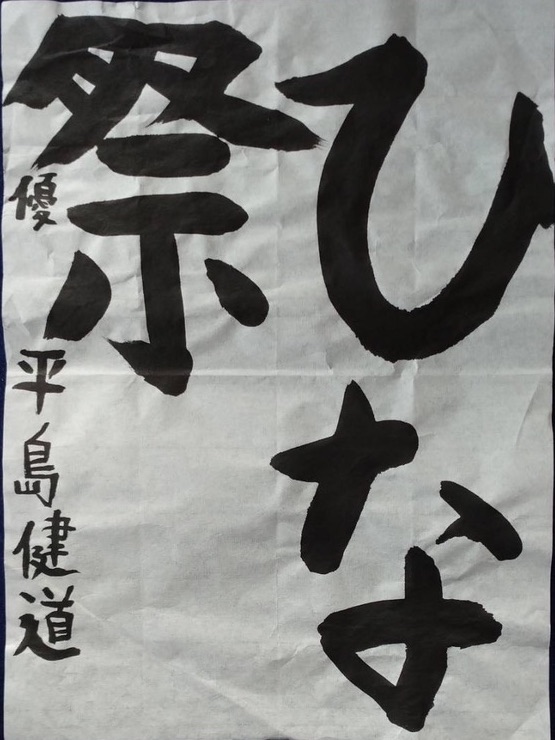 ひな
祭
優 平島健道